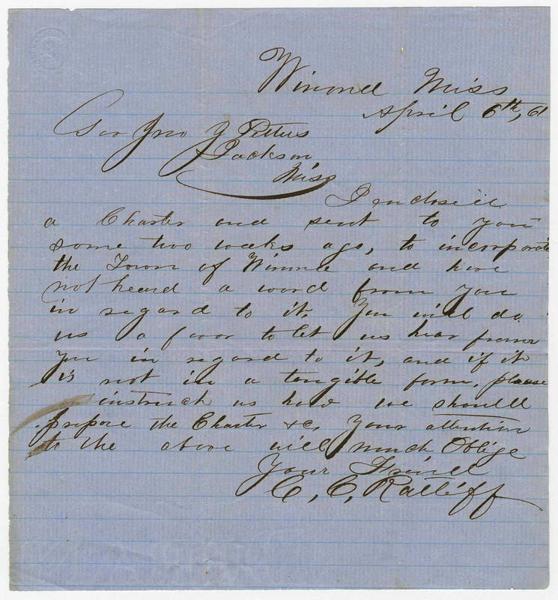 Winona Miss
April 6th, 61
Gov Jno J Pettus
Jackson,
Miss
I enclosed
a Charter and sent to you
some two weeks ago, to incorporate
the Town of Winona and have
not heard a word from you
in regard to it. You will do
us a favor to let us hear from
you in regard to it, and if it
is not in a tangible form, please
instruct us how we should
prepare the Charter &c. Your attention
to the above will much Oblige
Your Friend
C. C. Ratliff